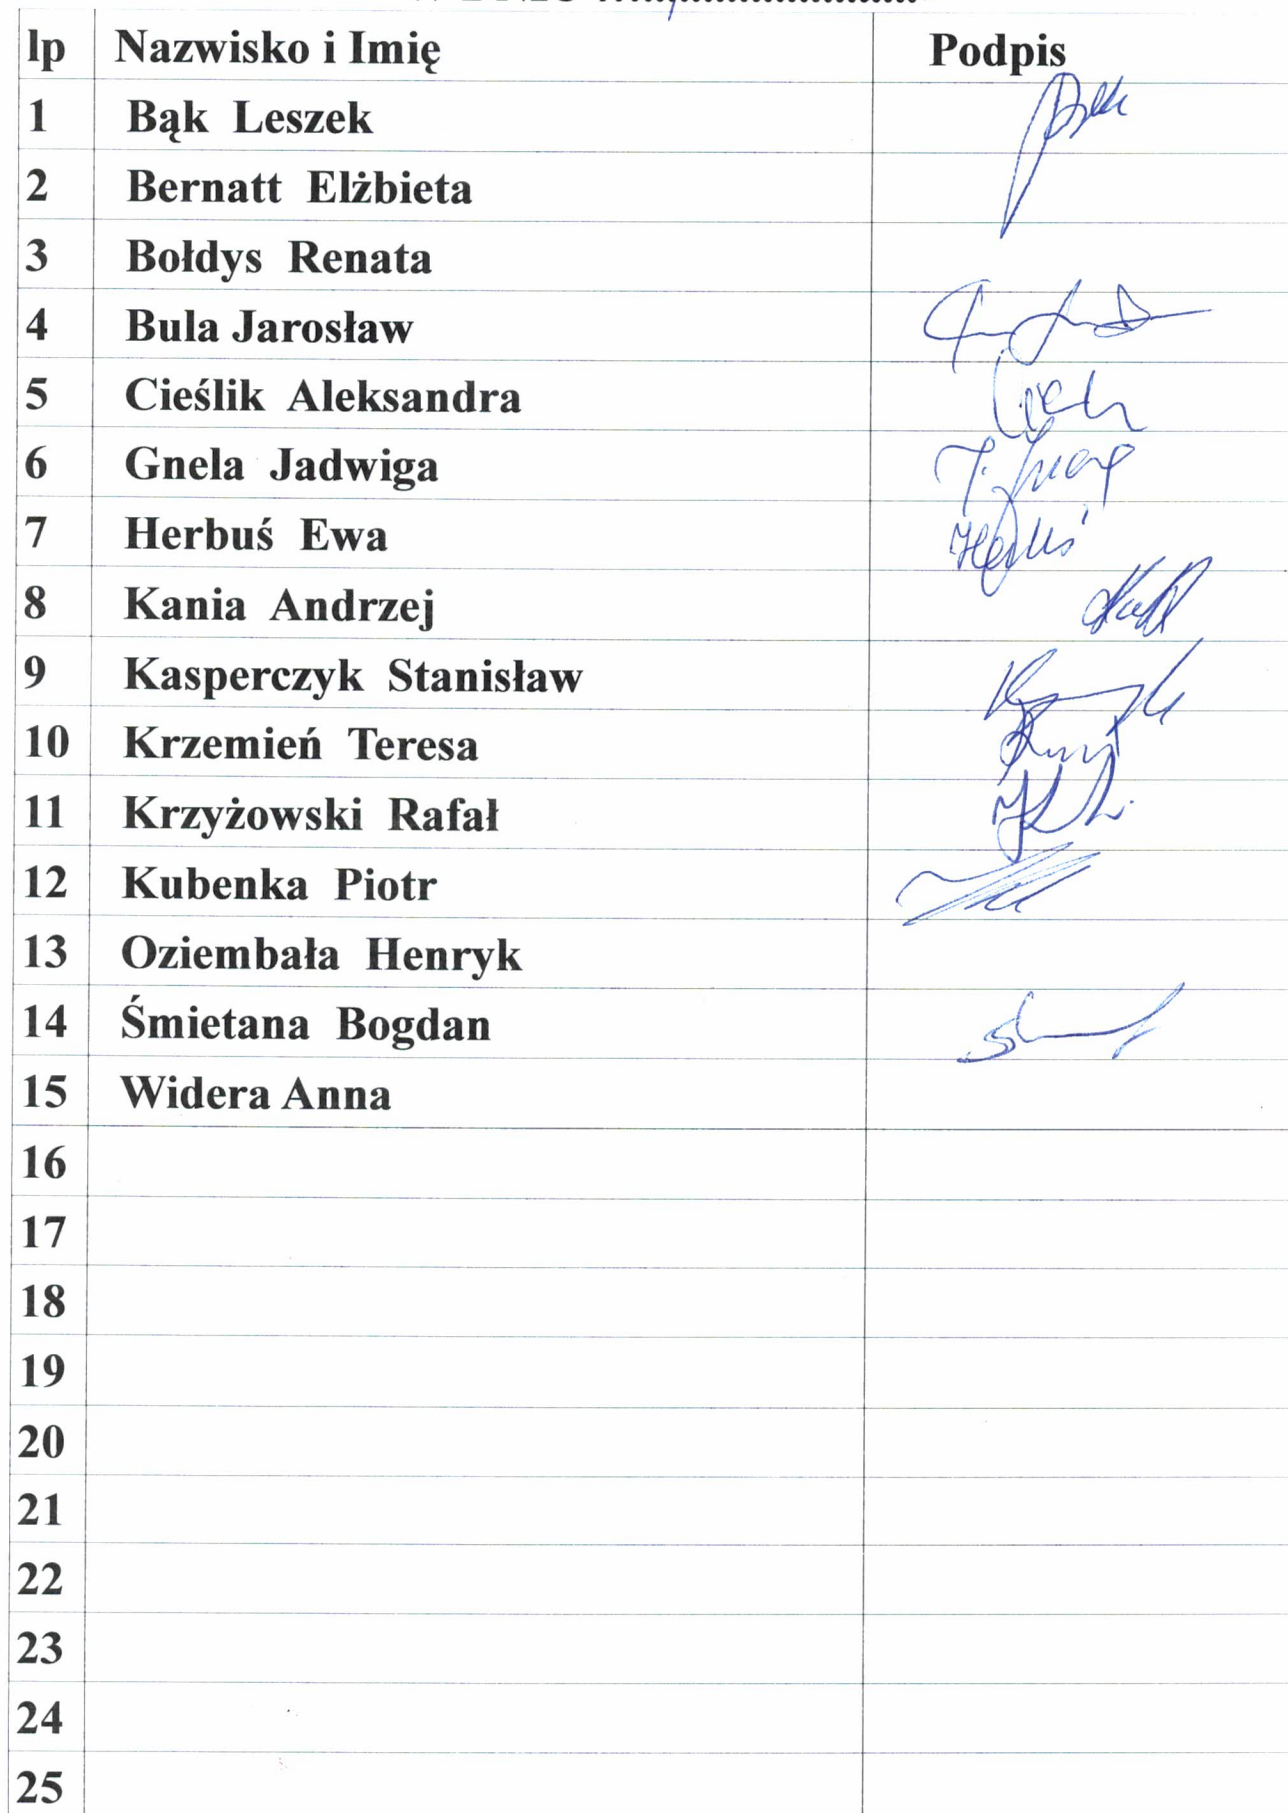 lp Nazwisko i Imię Podpis
1 Bąk Leszek
2 Bernatt Elżbieta
3 Bołdys Renata
4 Bula Jarosław
5 Cieślik Aleksandra
6 Gnela Jadwiga
7 Herbuś Ewa
8 Kania Andrzej
9 Kasperczyk Stanisław
10 Krzemień Teresa
11 Krzyżowski Rafał
12 Kubenka Piotr
13 Oziembała Henryk
14 Śmietana Bogdan
15 Widera Anna
16
17
18
19
20
21
22
23
24
25